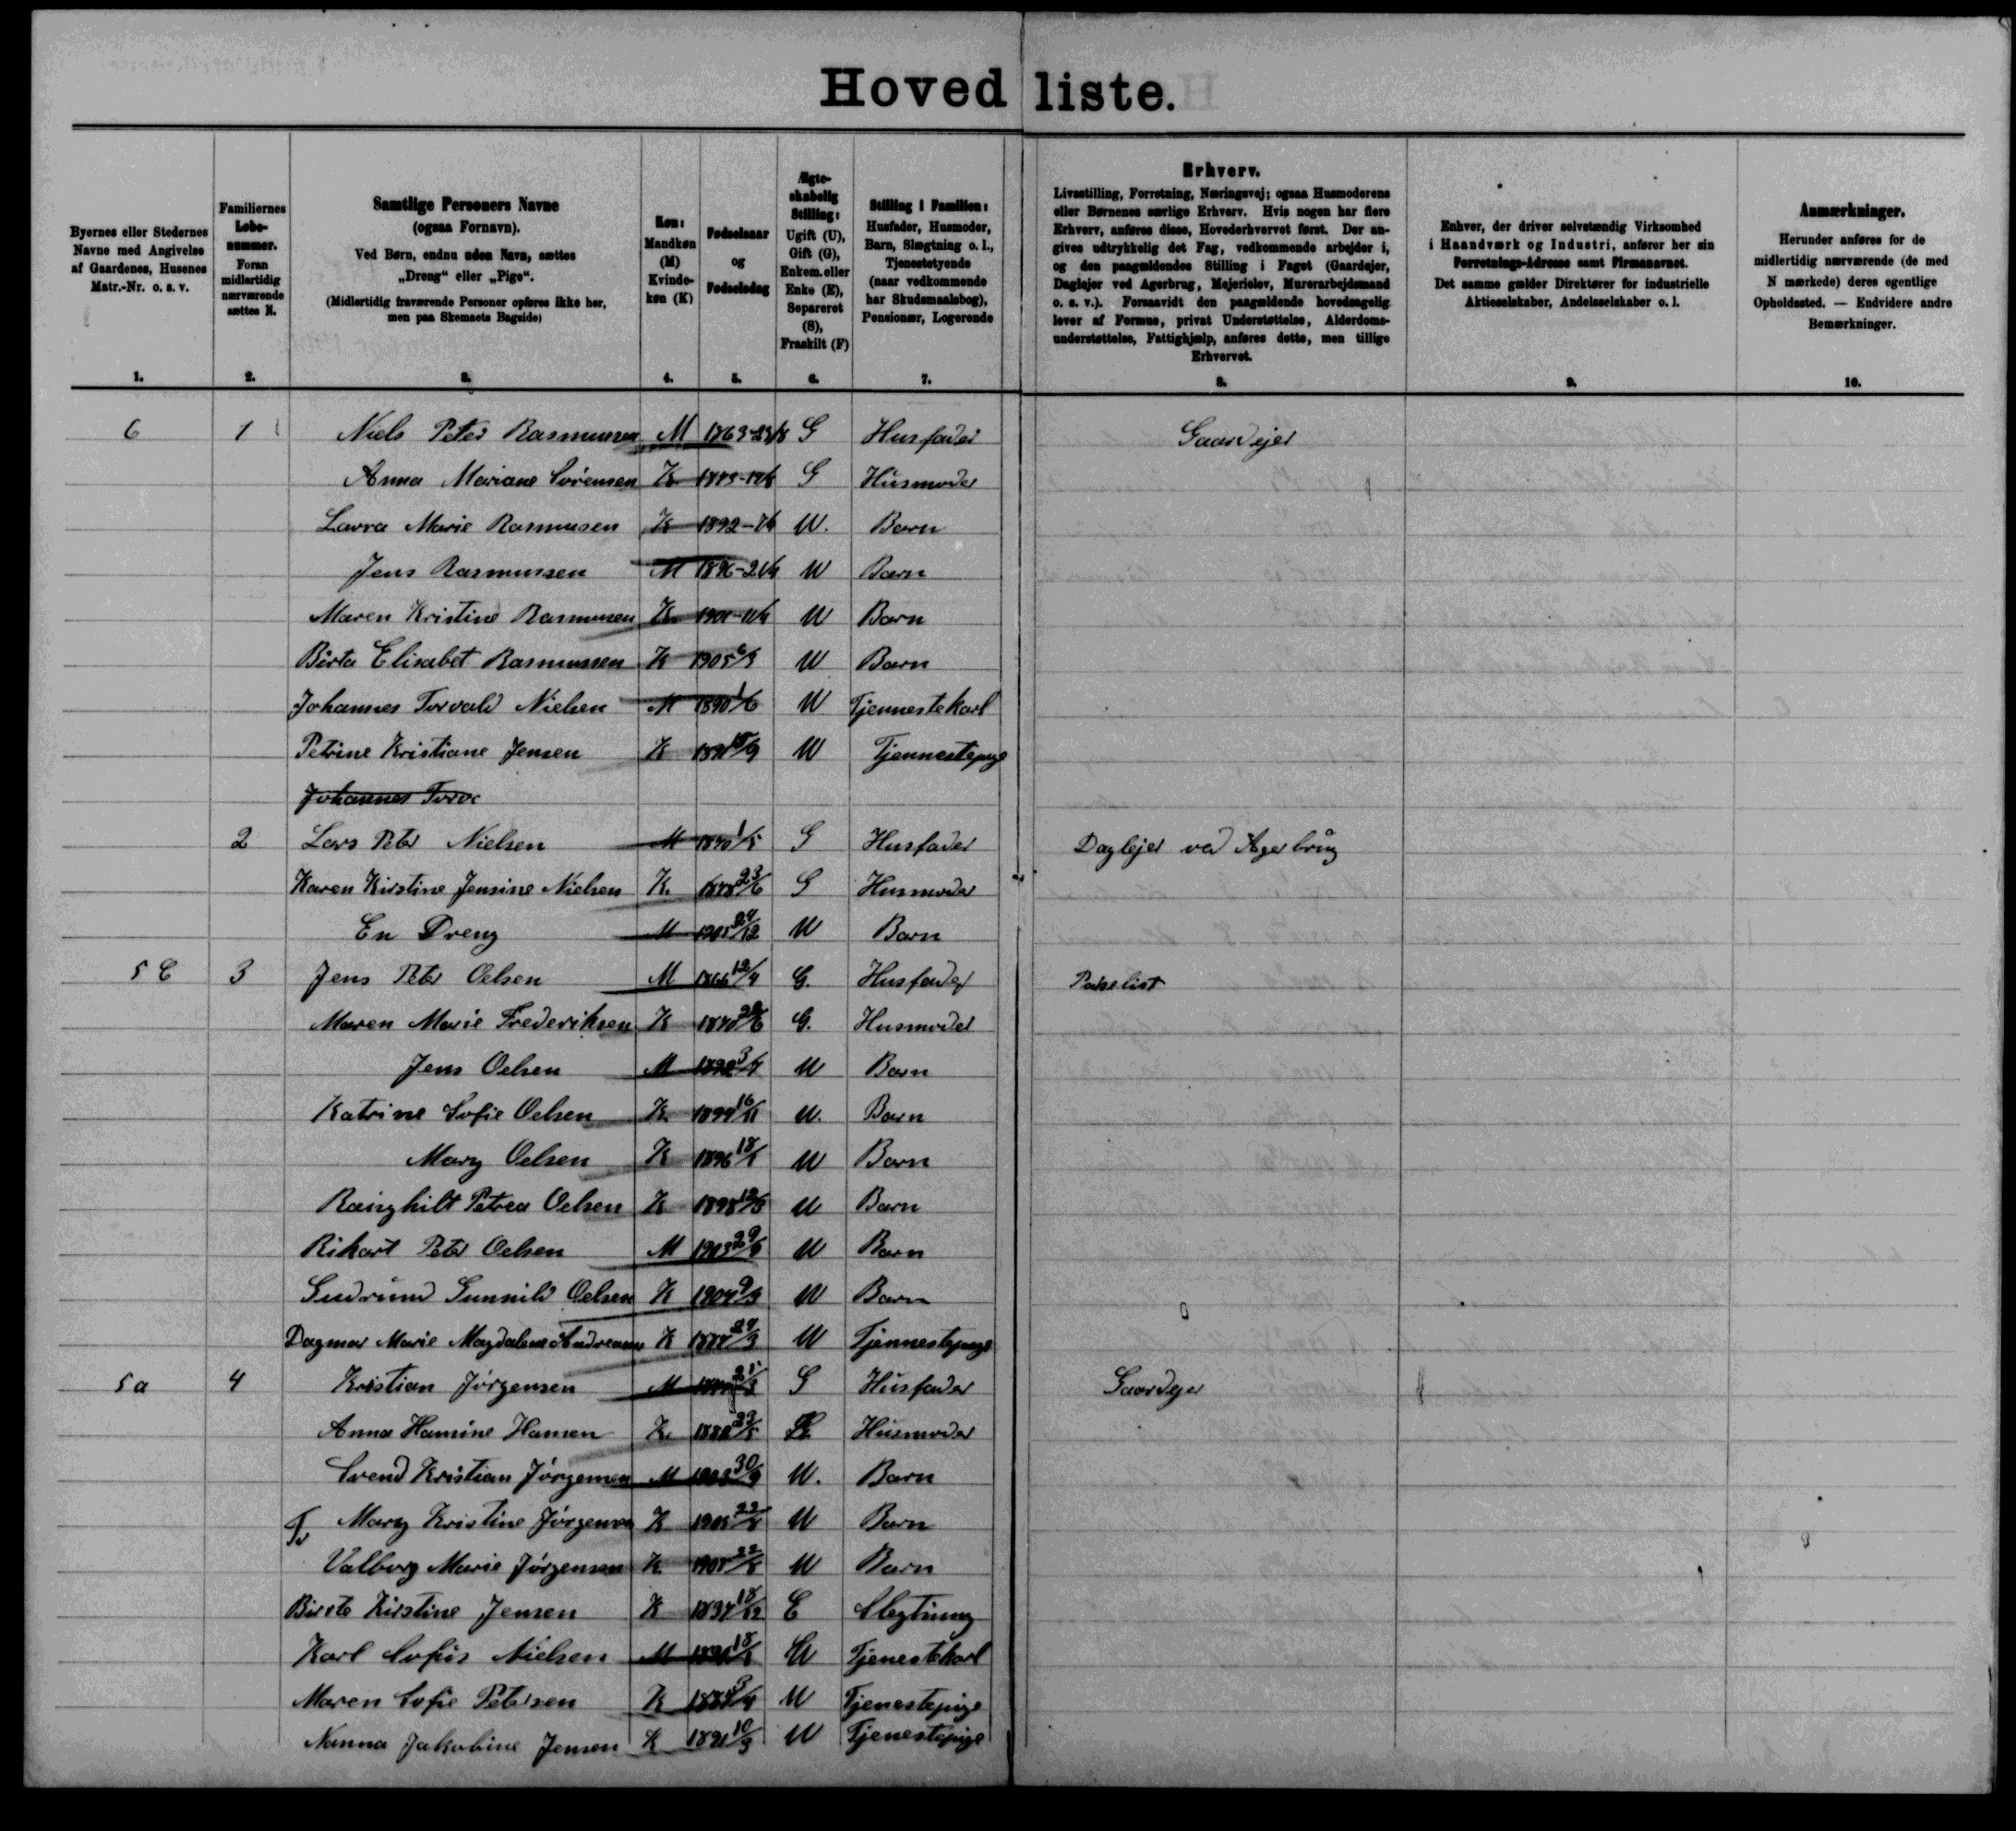 Hovedliste.
Byernes eller Stedernes Navne med Angivelse af Gaardenes, Husenes Matr.-Nr. o. s. v.
Familiernes Løbe-nummer. Foran midlertidig nærværende sættes N.
Samtlige Personers Navne (ogsaa Fornavn).
Ved Børn, endnu uden Navn, sættes „Dreng“ eller „Pige“.
(Midlertidig fraværende Personer opføres ikke her, men paa Skemaets Bagside)
Køn: Mandkøn (M) Kvinde-køn (K)
Fødselsaar og Fødselsdag
Ægte-skabelig Stilling: Ugift (U), Gift (G), Enkem. eller Enke (E), Separeret (S), Fraskilt (F)
Stilling i Familien: Husfader, Husmoder, Barn, Slægtning o. l., Tjenestetyende (naar vedkommende har Skudsmaalsbog), Pensionær, Logerende
Erhverv.
Livsstilling, Forretning, Næringsvej; ogsaa Husmoderens eller Børnenes særlige Erhverv. Hvis nogen har flere Erhverv, anføres disse, Hovederhvervet først. Der an-gives udtrykkelig det Fag, vedkommende arbejder i, og den paagældendes Stilling i Faget (Gaardejer, Daglejer ved Agerbrug, Mejerielev, Murerarbejdsmand o. s. v.). Forsaavidt den paagældende hovedsagelig lever af Formue, privat Understøttelse, Alderdoms-understøttelse, Fattighjælp, anføres dette, men tillige Erhvervet.
Enhver, der driver selvstændig Virksomhed i Haandværk og Industri, anfører her sin Forretnings-Adresse samt Firmanavnet.
Det samme gælder Direktører for industrielle Aktieselskaber, Andelsselskaber o. l.
Anmærkninger.
Herunder anføres for de midlertidig nærværende (de med N mærkede) deres egentlige Opholdssted. — Endvidere andre Bemærkninger.
1. 2. 3. 4. 5. 6. 7. 8. 9. 10.
6 1 Niels Peter Rasmussen M 1863 G Husfader Gaardejer
Anna Mariane Sørensen K G Husmoder
Lavra Marie Rasmusen K 1892 U. Barn
Jens Rasmussen M 1896 U Barn
Maren Kristine Rasmusen K U Barn
Birta Elisabet Rasmussen K 1905 6/3 U Barn
Johannes Torvald Nielsen M 1890 1/6 U Tjennestekarl
Petrine Kristiane Jensen K U Tjennestepige
Johannes Torv
2 Lars Peter Nielsen M 1870 1/5 G Husfader Daglejer ved Agerbrug
Karen Kirstine Jensine Nielsen K. 23/6 G Husmoder
En Dreng M 1905 24/12 U Barn
5 C 3 Jens Peter Oelsen M 1866 12/4 G. Husfader
Maren Marie Frederiksen K 1870 G. Husmoder
Jens Oelsen M U Barn
Katrine Sofie Oelsen K. 1894 16/11 U. Barn
Mary Oelsen K 1896 18/1 U Barn
Rainghilt Petrea Oelsen K 1898 U Barn
Rikart Peter Oelsen M 1903 U Barn
Gudrund Gunnild Oelsen K 1904 9/3 U Barn
Dagmar Marie Magdalene Andreasen K 24/3 U Tjennestepige
5 a 4 Kristian Jørgensen M G Husfader Gaardejer
Anna Hansine Hansen K. Husmoder
Svend Kristian Jørgensen M 1903 30/9 U. Barn
Tv Mary Kristine Jørgensen K 1905 22/8 U Barn
Valborg Marie Jørgensen K 1905 22/8 U Barn
Birete Kirstine Jensen K 18/12 E Slegtning
Karl Sofus Nielsen M U Tjenestekarl
Maren Sofie Petersen K U Tjenestepige
Nanna Jakobine Jensen K 1891 10/3 U Tjenestepige